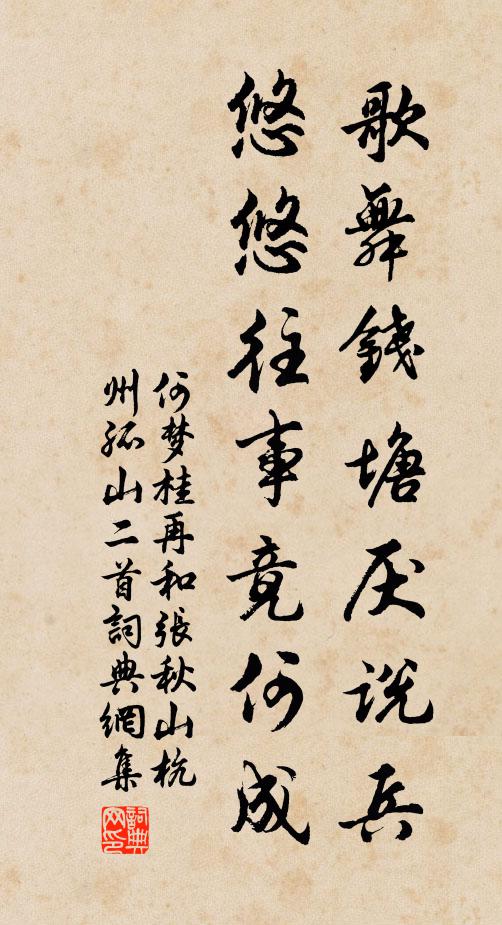 歌舞錢塘厌説兵
悠悠往事竟何成
何梦桂再和張秋山杭
州孤山二首詞典網集
詞典
网印